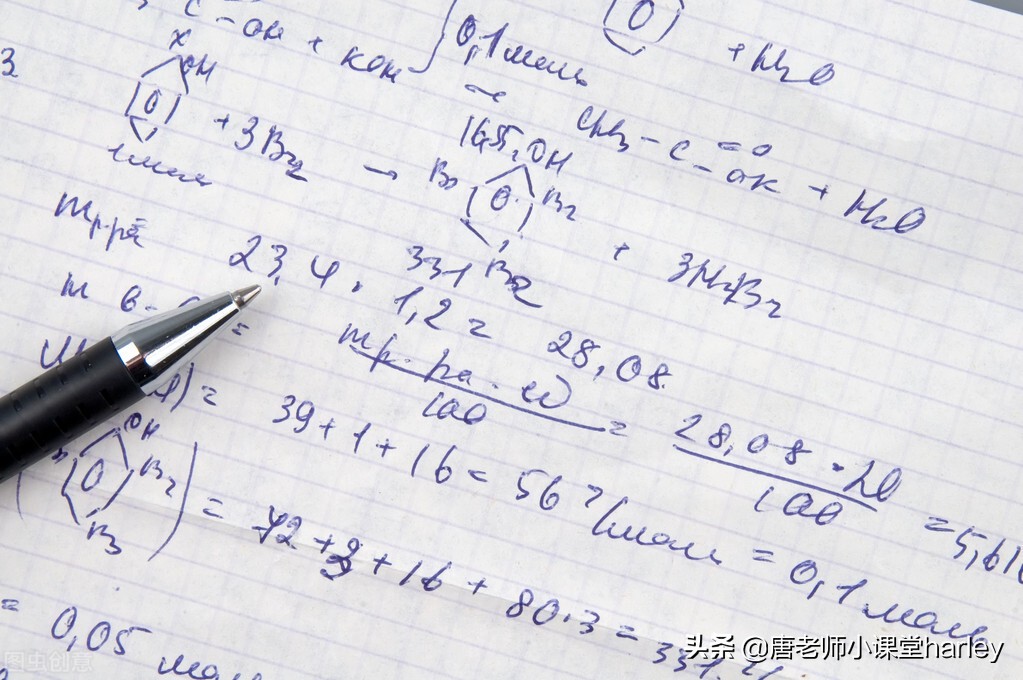 C - OH + KOH 0,1 моль
+ H2O
3.
x
OH
[O] + 3Br2 →
1 моль
16,55 OH
Br [O] Br
331 Br
+ 3HBr
→ CH3 - C = O
- OK + H2O
m р-ра 23,4 · 1,2 = 28,08
m в-
= mр-ра · ω
100
= 28,08 · 20
100
= 5,616
)= 39+1+16 = 56 г/моль = 0,1 моль
( OH
[O] Br
Br ) = 72+3+16+80·3 = 331 г/
= 0,05 моль
图虫创意
头条 @唐老师小课堂harley